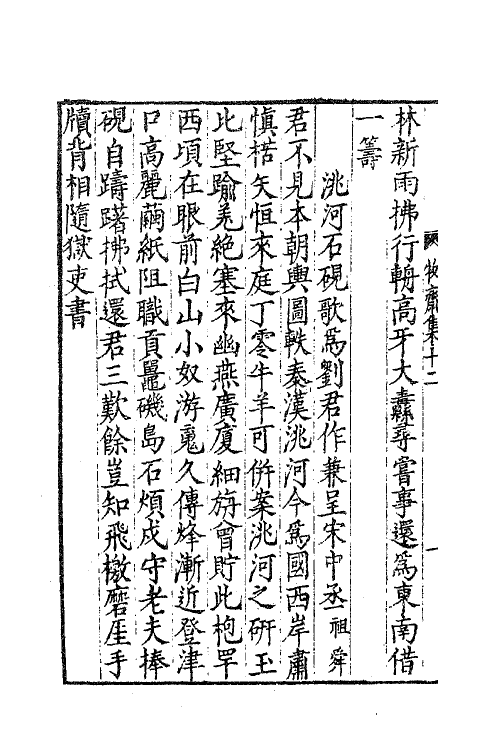 牧齋集十二
一
林新雨拂行輈高牙大纛尋嘗事還爲東南借
一籌
洮河石硯歌爲劉君作兼呈宋中丞祖舜
君不見本朝輿圖軼秦漢洮河今爲國西岸肅
慎楛矢恒來庭丁零牛羊可併案洮河之硏玉
比堅踰羌絶塞來幽燕廣厦細旃曾貯此枹罕
西頃在眼前白山小奴游䰟久傳烽漸近登津
口高麗繭紙阻職貢鼉磯島石煩戍守老夫捧
硯自躊躇拂拭還君三歎餘豈知飛檄磨厓手
牘背相隨獄吏書